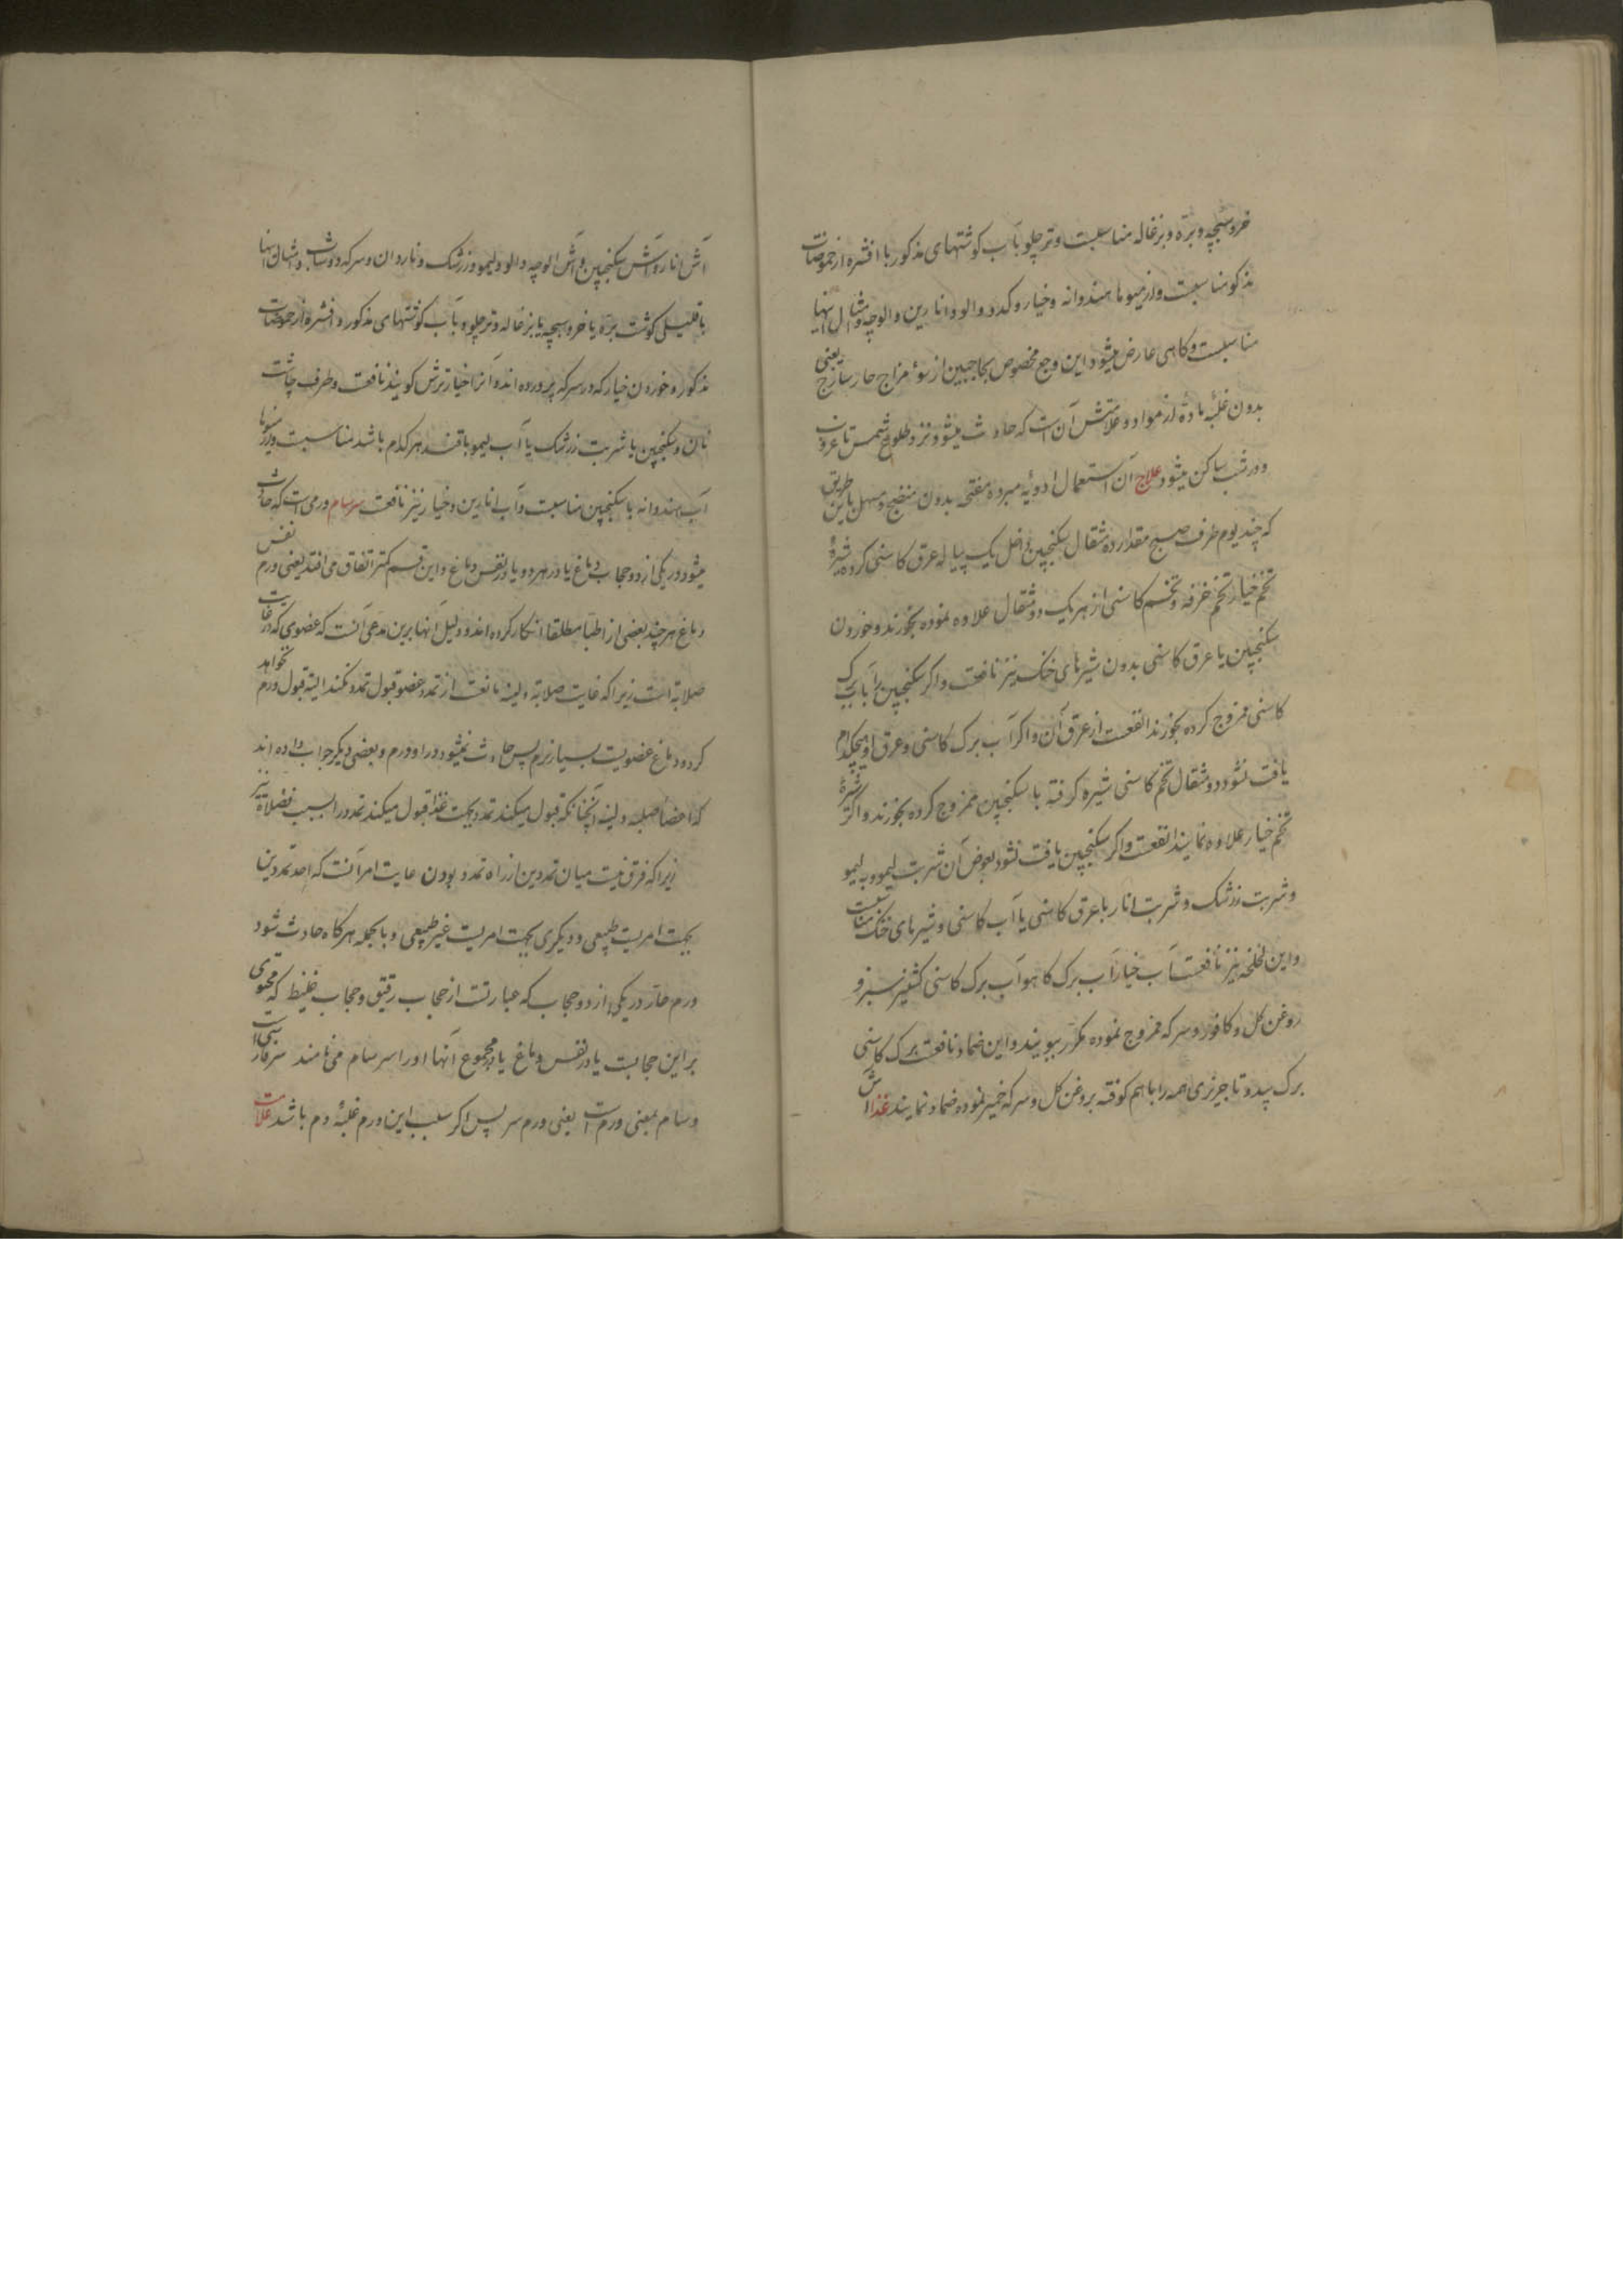 خروسبچه و بره و بزغاله مناسبست و تر چلو با آب کوشتهای مذکور با افشره از حموضات
مذکور مناسبست و از میوها هندوانه و خیار و کدو و الو و انارین و الوچه و امثال اینها
مناسبست و کاهی عارض میشود این وجع مخصوص بحاجبین از سوء مزاج حار ساذج یعنی
بدون غلبهٔ مادهٔ از مواد و علامتش آن است که حادث میشود نزد طلوع شمس تا غروب
و در شب ساکن میشود علاج آن استعمال ادویهٔ مبرده مفتحه بدون منضج و مسهل باین طریق
که چند یوم طرف صبح مقدار ده مثقال سکنجبین داخل یک پیاله عرق کاسنی کرده شیرهٔ
تخم خیار و تخم خرفه و تخم کاسنی از هر یک دو مثقال علاوه نموده بخورند و خوردن
سکنجبین با عرق کاسنی بدون شیرهای خنک نیز نافعست و اکر سکنجبین را با آب برک
کاسنی ممزوج کرده بخورند انفعست از عرق آن و اکر آب برک کاسنی و عرق او هیچکدام
یافت نشود دو مثقال تخم کاسنی شیره کرفته با سکنجبین ممزوج کرده بخورند و اکر شیرهٔ
تخم خیار علاوه نمایند انفعست و اکر سکنجبین یافت نشود بعوض آن شربت لیمو و به لیمو
و شربت زرشک و شربت انار با عرق کاسنی یا آب کاسنی و شیرهای خنک مناسبست
و این لخلخه نیز نافعست آب خیار آب برک کاهو آب برک کاسنی کشنیز سبز و
روغن کل و کافور و سرکه ممزوج نموده مکرر ببویند و این ضماد نافعست برک کاسنی
برک بید و تاجریزی همه را با هم کوفته بروغن کل و سرکه خمیر نموده ضماد نمایند غذااش
آش انار و آش سکنجبین و آش الوچه و الو و لیمو و زرشک و ناردان و سرکه و دوشاب و امثال اینها
با قلیلی کوشت بره یا خروسبچه یا بزغاله و تر چلو و با آب کوشتهای مذکور و افشره از حموضات
مذکور و خوردن خیار که در سرکه پرورده اند و آنرا خیار ترش کویند نافعست و طرف چاشت
نان و سکنجبین یا شربت زرشک یا آب لیمو با قند هر کدام باشد مناسبست و از میوها
آب هندوانه با سکنجبین مناسبست و آب انارین و خیار نیز نافعست سرسام ورمی است که حادث
میشود در یکی از دو حجاب دماغ یا در هر دو و یا در نفس دماغ و این قسم کمتر اتفاق می افتد یعنی ورم نفس
دماغ هر چند بعضی از اطبا مطلقا انکار کرده اند و دلیل آنها برین مدعی آنست که عضوی که در غایت
صلابة است زیرا که غایت صلابة و لینه مانعست از تمدد و عضو قبول تمدد نکند البته قبول ورم نخواهد
کرد و دماغ عضویست بسیار نرم پس حادث نمیشود در او ورم و بعضی دیکر جواب داده اند
که اعضا صلبه و لینه آنچنانکه قبول میکنند تمدد بجهت غذا قبول میکنند تمدد را بسبب فضلات نیز
زیرا که فرق نیست میان تمددین از راه تمدد بودن غایت امر آنست که احد تمددین
بجهت امریست طبیعی و دیکری بجهت امریست غیر طبیعی و بالجمله هر کاه حادث شود
ورم حار در یکی از دو حجاب که عبارتست از حجاب رقیق و حجاب غلیظ که محتوی
بر این حجابست یا در نفس دماغ یا در مجموع آنها او را سرسام می نامند سر فارسی است
و سام بمعنی ورم است یعنی ورم سر پس اکر سبب این ورم غلبهٔ دم باشد علامت